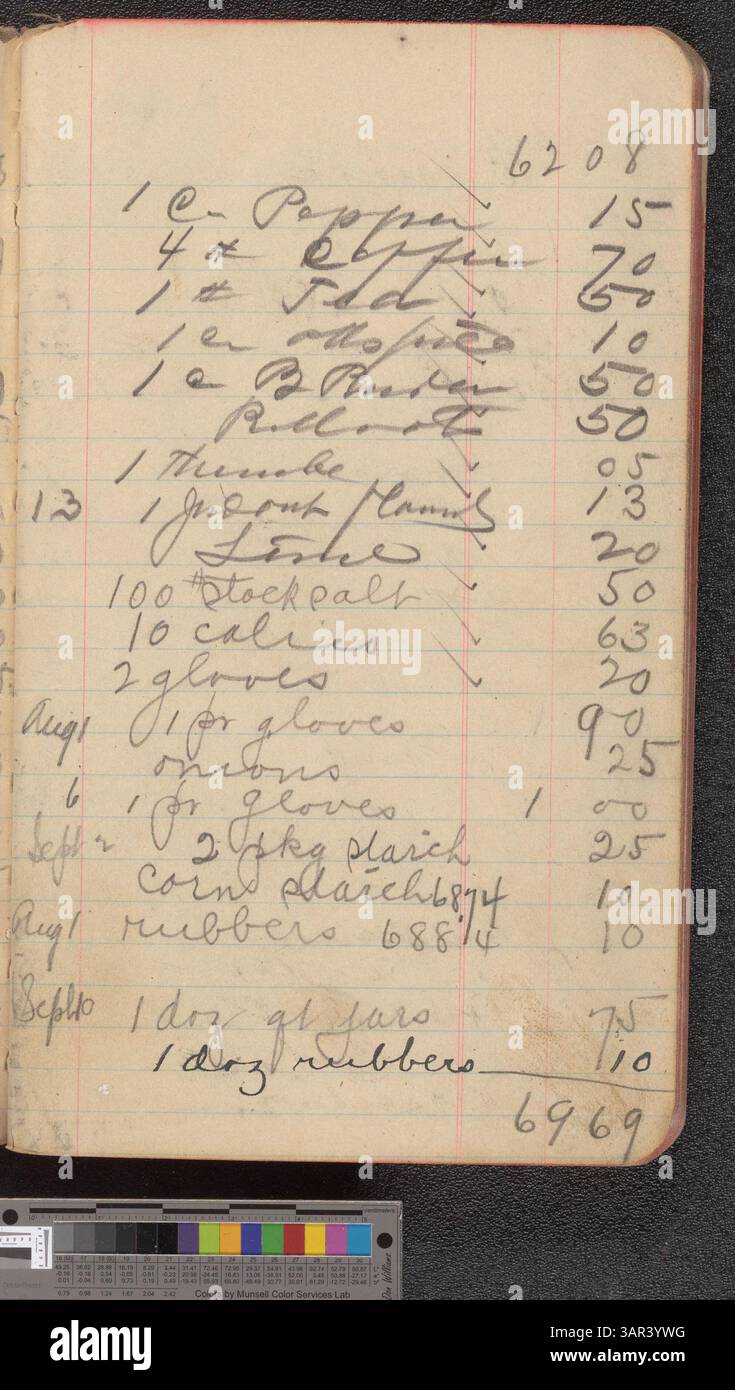 6208
1 c Pepper 15
4 # Coffee 70
1 # Tea 50
1 c allspice 10
1 c B 50
50
1 05
13 1 13
Lime 20
100 # stock salt 50
10 calico 63
2 gloves 20
Aug 1 1 pr gloves 90
onions 25
6 1 pr gloves 1 00
Sept 2 2 pkg starch 25
corn starch 6874 10
Aug 1 rubbers 6884 10
Sept 10 1 doz qt jars 75
1 doz rubbers 10
6969
centimeters
Colors by Munsell Color Services Lab
alamy
Image ID: 3AR3YWG
www.alamy.com